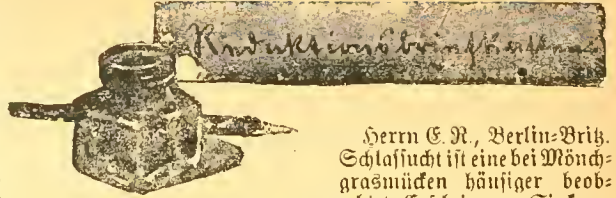 Redaktionsbriefkasten
Herrn E. R., Berlin-Britz.
Schlafsucht ist eine bei Mönch-
grasmücken häufiger beob-